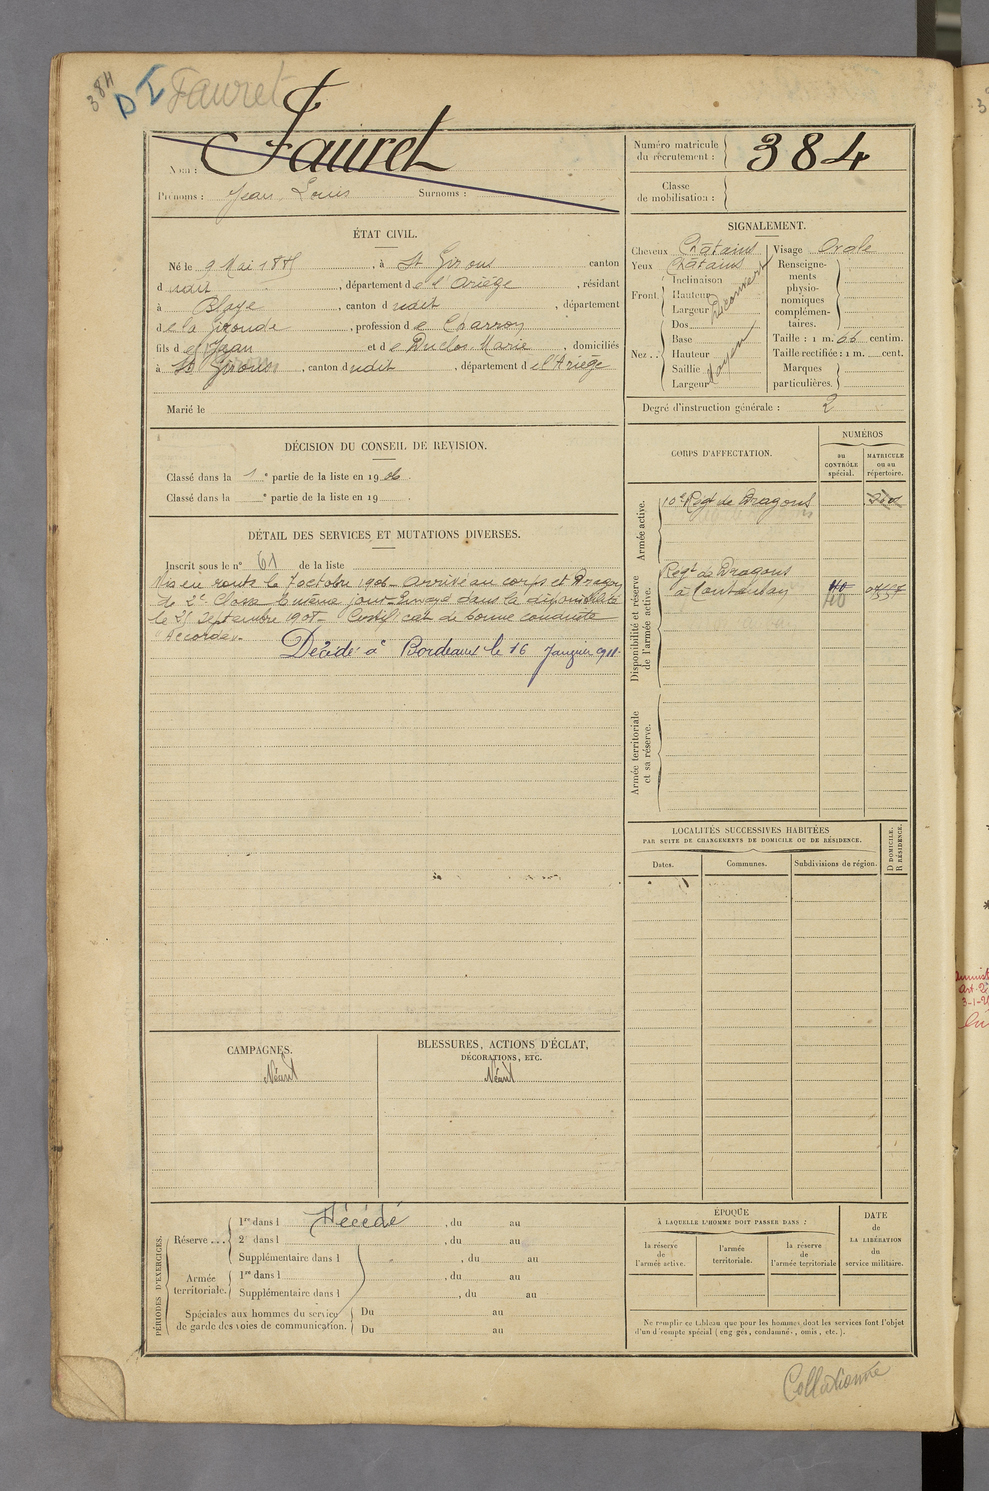 384
D I Fauret
Nom : Fauret
Prénoms : Jean Louis Surnoms :
Numéro matricule du recrutement : 384
Classe de mobilisation :
ÉTAT CIVIL.
Né le 9 Mai 1885, à St Girons canton
d udit, département de l'Ariège, résidant
à Blaye, canton d udit, département
de la Gironde, profession de Charron
fils de Jean et de Duclos Marie, domiciliés
à St Girons, canton dudit, département de l'Ariège
Marié le
SIGNALEMENT.
Cheveux Châtains
Yeux Châtains
Front.
Inclinaison
Hauteur
Largeur
Découvert
Nez . . .
Dos
Base
Hauteur
Saillie
Largeur
Moyen
Visage Ovale
Renseigne-
ments
physio-
nomiques
complémen-
taires.
Taille : 1 m. 66 centim.
Taille rectifiée : 1 m. cent.
Marques
particulières.
Degré d'instruction générale : 2
DÉCISION DU CONSEIL DE REVISION.
Classé dans la 1e partie de la liste en 1906.
Classé dans la e partie de la liste en 19 .
DÉTAIL DES SERVICES ET MUTATIONS DIVERSES.
Inscrit sous le n° 61 de la liste
Mis en route le 7 octobre 1906 - Arrivé au corps et Dragon
de 2e Classe le même jour - Envoyé dans la disponibilité
le 25 Septembre 1908 - Certificat de bonne conduite
"Accordé".
Décédé à Bordeaux le 16 Janvier 1911.
CORPS D'AFFECTATION.
NUMÉROS
au
CONTRÔLE
spécial.
MATRICULE
ou au
répertoire.
Armée active.
10e Regt de Dragons
Disponibilité et réserve
de l'armée active.
Regt de Dragons
à Montauban
Armée territoriale
et sa réserve.
LOCALITÉS SUCCESSIVES HABITÉES
PAR SUITE DE CHANGEMENTS DE DOMICILE OU DE RÉSIDENCE.
Dates.
Communes.
Subdivisions de région.
D. DOMICILE.
R. RÉSIDENCE.
CAMPAGNES.
Néant
BLESSURES, ACTIONS D'ÉCLAT,
DÉCORATIONS, ETC.
Néant
PÉRIODES D'EXERCICES.
Réserve . . .
1re dans l Décédé, du au
2e dans l , du au
Supplémentaire dans l , du au
Armée
territoriale.
1re dans l , du au
Supplémentaire dans l , du au
Spéciales aux hommes du service
de garde des voies de communication.
Du au
Du au
ÉPOQUE
À LAQUELLE L'HOMME DOIT PASSER DANS :
la réserve
de
l'armée active.
l'armée
territoriale.
la réserve
de
l'armée territoriale
DATE
de
LA LIBÉRATION
du
service militaire.
Ne remplir ce tableau que pour les hommes dont les services font l'objet
d'un décompte spécial (engagés, condamnés, omis, etc.).
Collationné